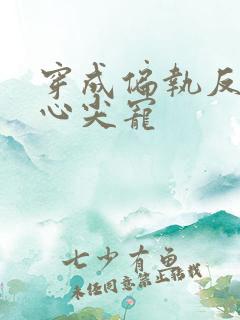 穿成偏執反
心尖寵
七少有魚
未经同意禁止转载